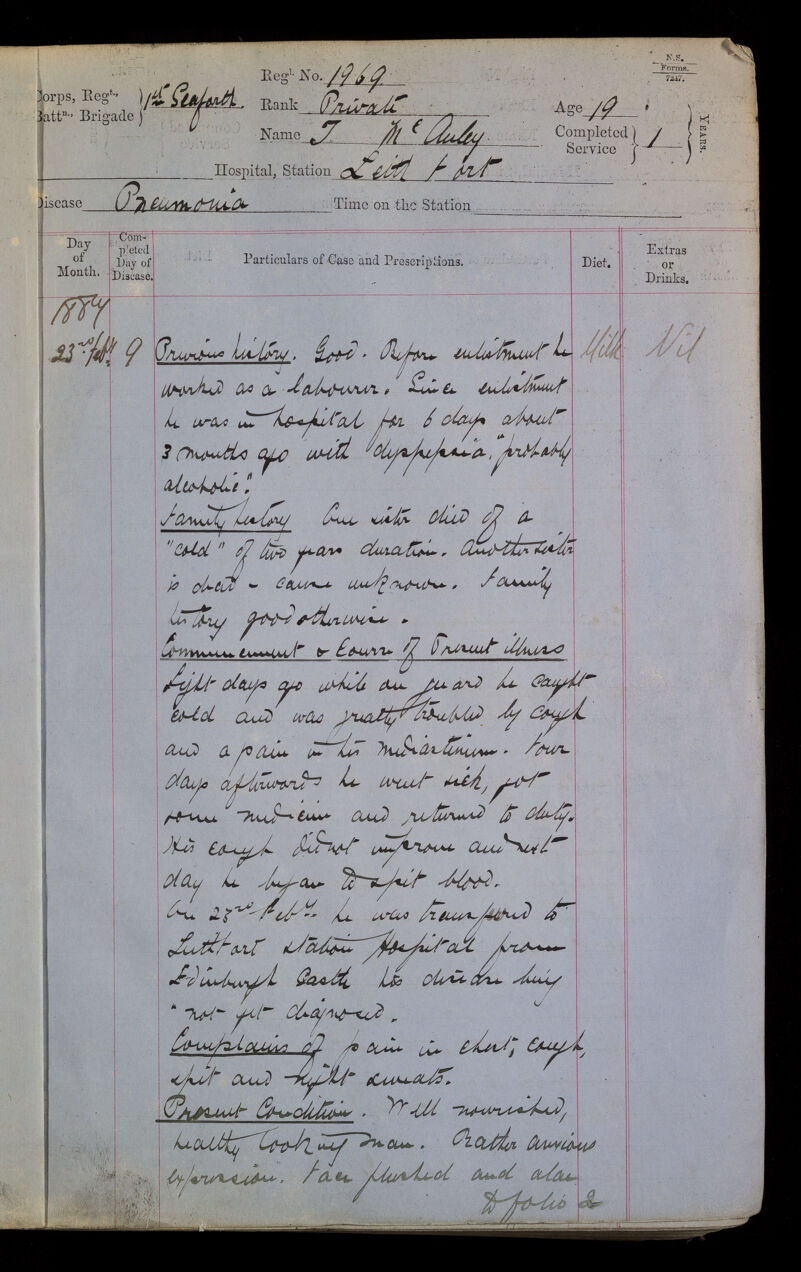 N.S.
Forms.
7247.
Regl. No. 1969
Corps, Regt., } 1st Seaforth.
Battn., Brigade
Rank Private
Age 19
Name J McAuley
Completed Service } 1 } YEARS.
Hospital, Station Leith Fort
Disease Pneumonia Time on the Station
Day of Month.
Completed Day of Disease.
Particulars of Case and Prescriptions.
Diet.
Extras or Drinks.
1884
23rd Feby. 9 Previous history. Good. Before enlistment he Milk Nil
worked as a labourer. Since enlistment
he was in hospital for 6 days about
3 months ago with dyspepsia, "probably
alcoholic".
Family history One sister died of a
"cold" of two years duration. Another sister
is dead - cause unknown. Family
history good otherwise.
Commencement & Course of Present illness
Eight days ago while on guard he caught
cold and was greatly troubled by cough
and a pain in his mediastinum. Four
days afterwards he went sick, got
some medicine and returned to duty.
His cough did not improve and next
day he began to spit blood.
On 23rd Feby. he was transferred to
Leith Fort station Hospital from
Edinburgh Castle his disease being
"not yet diagnosed.
Complains of pain in chest, cough,
spit and night sweats.
Present Condition. Well nourished,
healthy looking man. Rather anxious
expression. Face flushed and alae
to folio 2